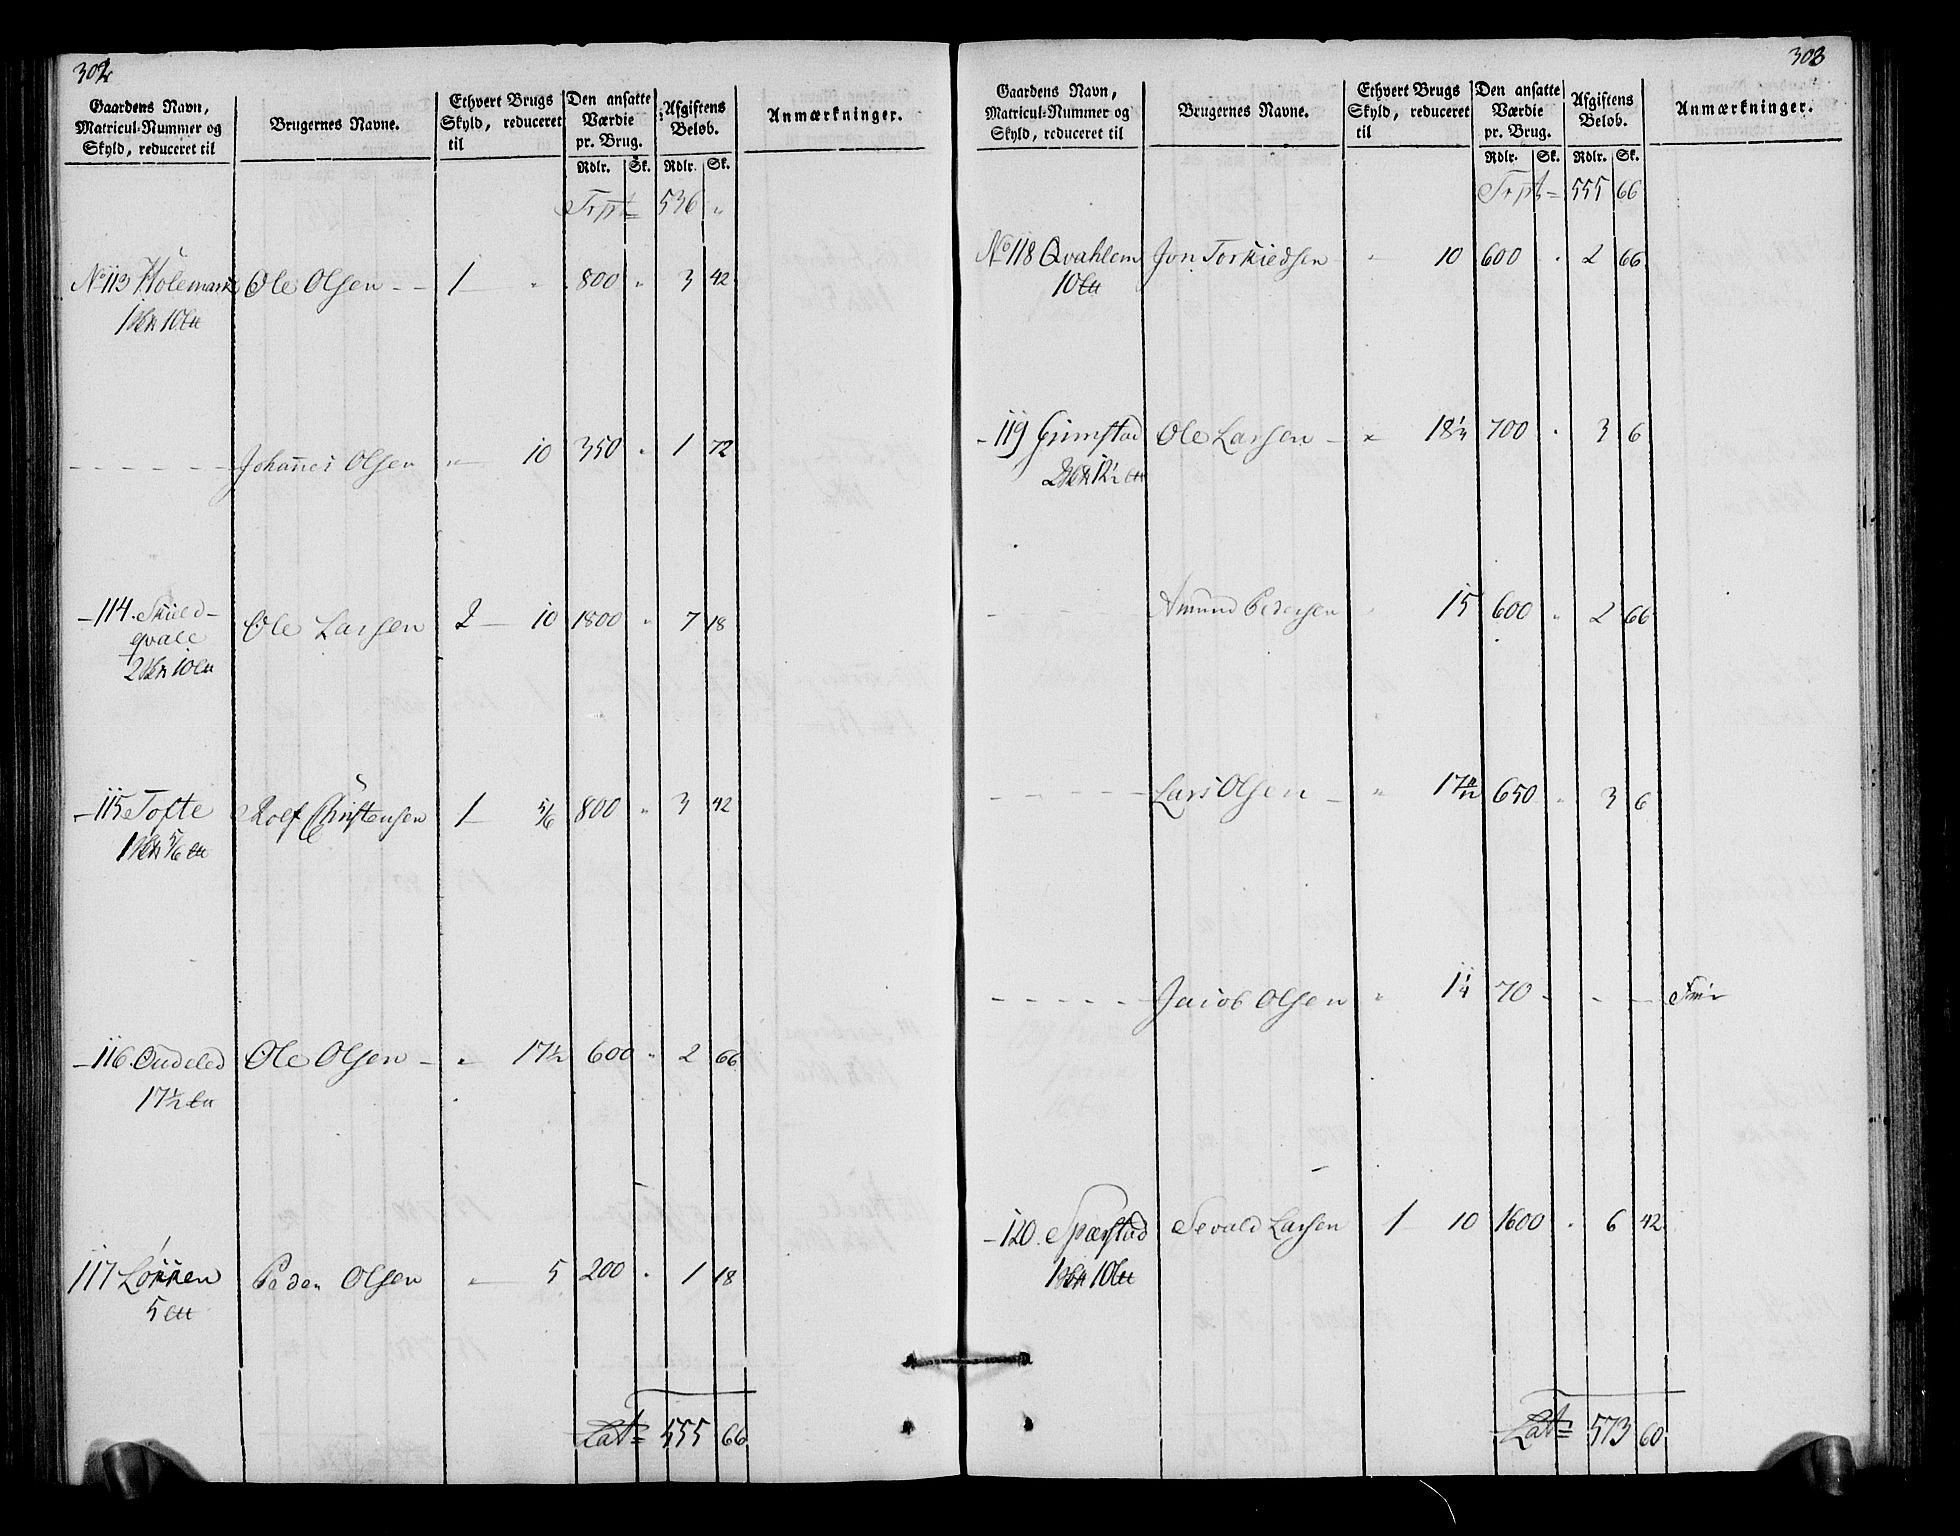 302
Gaardens Navn, Matricul-Nummer og Skyld, reduceret til | Brugernes Navne. | Ethvert Brugs Skyld, reduceret til | Den ansatte Værdie pr. Brug. | Afgiftens Beløb. | Anmærkninger.
Rdlr. Sk. Rdlr. Sk.
Trpt 536 "
No 113 Holemark Ole Olsen - - 1 " 800 " 3 42
1 10
Johannes Olsen " 10 350 " 1 72
114. Skield-
qvale Ole Larsen 2 10 1800 " 7 18
2 10
115 Tofte Rolf Christensen 1 5/6 800 " 3 42
1 5/6
116. Ole Olsen " 17½ 600 " 2 66
17½
117 Løkken Peder Olsen " 5 200 " 1 18
5
Lat 555 66
303
Gaardens Navn, Matricul-Nummer og Skyld, reduceret til | Brugernes Navne. | Ethvert Brugs Skyld, reduceret til | Den ansatte Værdie pr. Brug. | Afgiftens Beløb. | Anmærkninger.
Rdlr. Sk. Rdlr. Sk.
Trpt 555 66
No 118 Qvahlem Jon Torkiedsen " 10 600 " 2 66
10
119 Grimstad Ole Larsen 18¼ 700 " 3 6
2 12½
Amund Pedersen " 15 600 " 2 66
Lars Olsen " 17 650 " 3 6
Jacob Olsen " 1¼ 70 - - -
120. Spærstad Sevald Larsen 1 10 1600 " 6 42
1 10
Lat 573 60